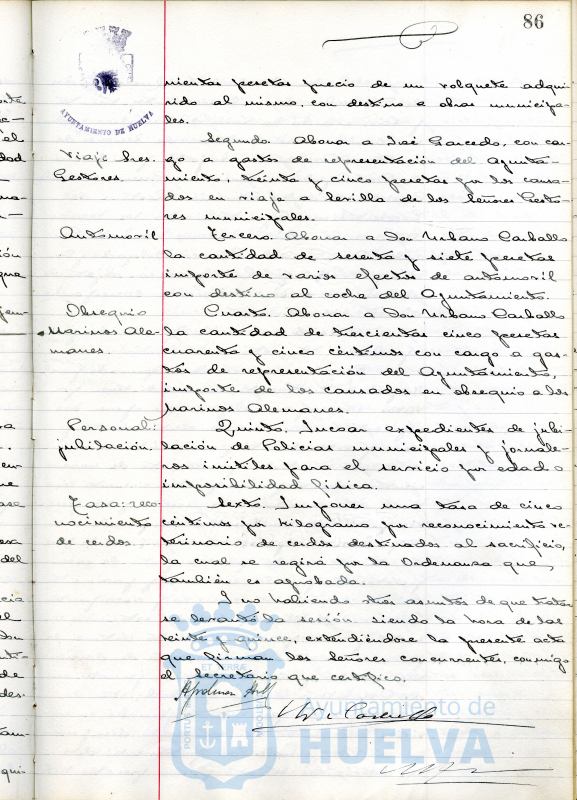 86
AYUNTAMIENTO DE HUELVA
nientas pesetas precio de un volquete adqui-
rido al mismo, con destino a obras municipa-
les.
Viaje Sres.
Gestores.
Segundo. Abonar a José Garcedo, con car-
go a gastos de representación del Ayunta-
miento, treinta y cinco pesetas por los causa-
dos en viaje a Sevilla de los Señores Gesto-
res municipales.
Automovil
Tercero. Abonar a Don Urbano Carballo
la cantidad de sesenta y siete pesetas
importe de varios efectos de automovil
con destino al coche del Ayuntamiento.
Obsequio
Marinos Ale-
manes.
Cuarto. Abonar a Don Urbano Carballo
la cantidad de trescientas cinco pesetas
cuarenta y cinco céntimos con cargo a gas-
tos de representación del Ayuntamiento,
importe de los causados en obsequio a los
Marinos Alemanes.
Personal:
jubilación.
Quinto. Incoar expedientes de jubi-
lación de Policias municipales y jornale-
ros inutiles para el servicio por edad o
imposibilidad física.
Tasa: reco-
nocimiento
de cerdos.
Sexto. Imponer una tasa de cinco
céntimos por kilogramo por reconocimiento ve-
terinario de cerdos destinados al sacrificio,
la cual se regirá por la Ordenanza que,
también es aprobada.
Y no habiendo otros asuntos de que tratar
se levantó la sesión siendo la hora de las
veinte y quince, extendiéndose la presente acta
que firman los Señores concurrentes, conmigo
el Secretario que certifico.
Ayuntamiento de
HUELVA